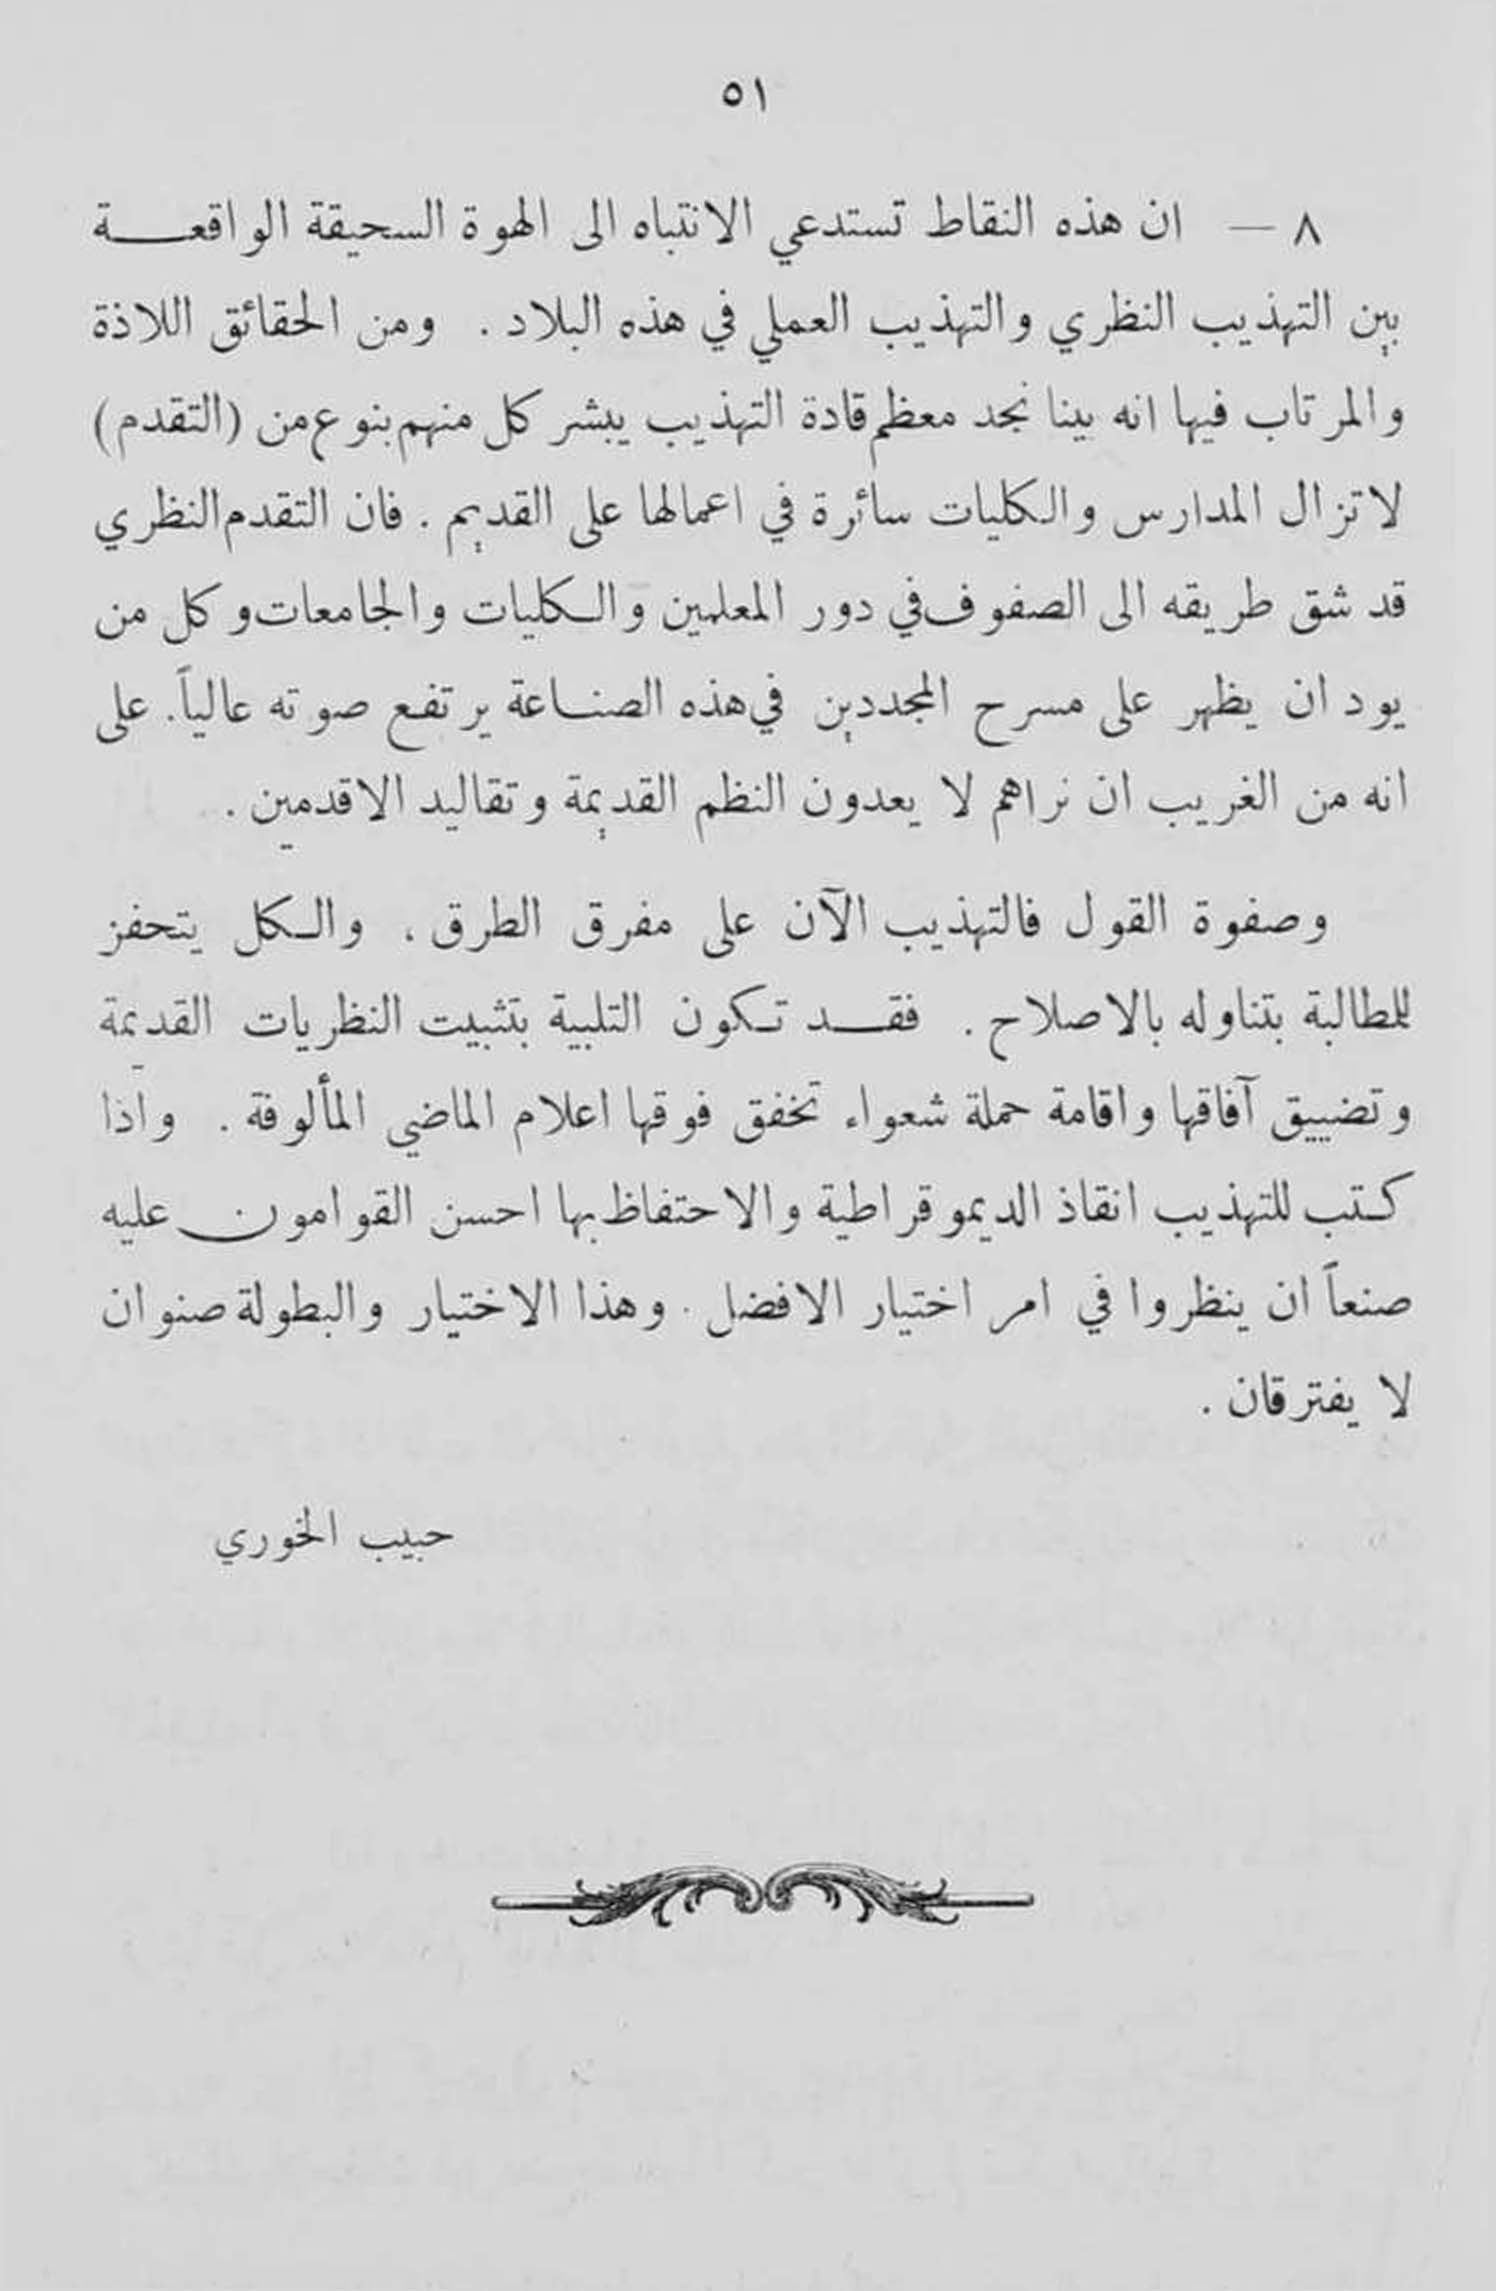 ٥١
٨ — ان هذه النقاط تستدعي الانتباه الى الهوة السحيقة الواقعة
بين التهذيب النظري والتهذيب العملي في هذه البلاد . ومن الحقائق اللاذة
والمرتاب فيها انه بينا نجد معظم قادة التهذيب يبشر كل منهم بنوع من (التقدم)
لا تزال المدارس والكليات سائرة في اعمالها على القديم . فان التقدم النظري
قد شق طريقه الى الصفوف في دور المعلمين والكليات والجامعات وكل من
يود ان يظهر على مسرح المجددين في هذه الصناعة يرتفع صوته عالياً . على
انه من الغريب ان نراهم لا يعدون النظم القديمة وتقاليد الاقدمين .
وصفوة القول فالتهذيب الآن على مفرق الطرق ، والكل يتحفز
للمطالبة بتناوله بالاصلاح . فقد تكون التلبية بتثبيت النظريات القديمة
وتضييق آفاقها واقامة حملة شعواء تخفق فوقها اعلام الماضي المألوفة . واذا
كتب للتهذيب انقاذ الديموقراطية والاحتفاظ بها احسن القوامون عليه
صنعاً ان ينظروا في امر اختيار الافضل . وهذا الاختيار والبطولة صنوان
لا يفترقان .
حبيب الخوري